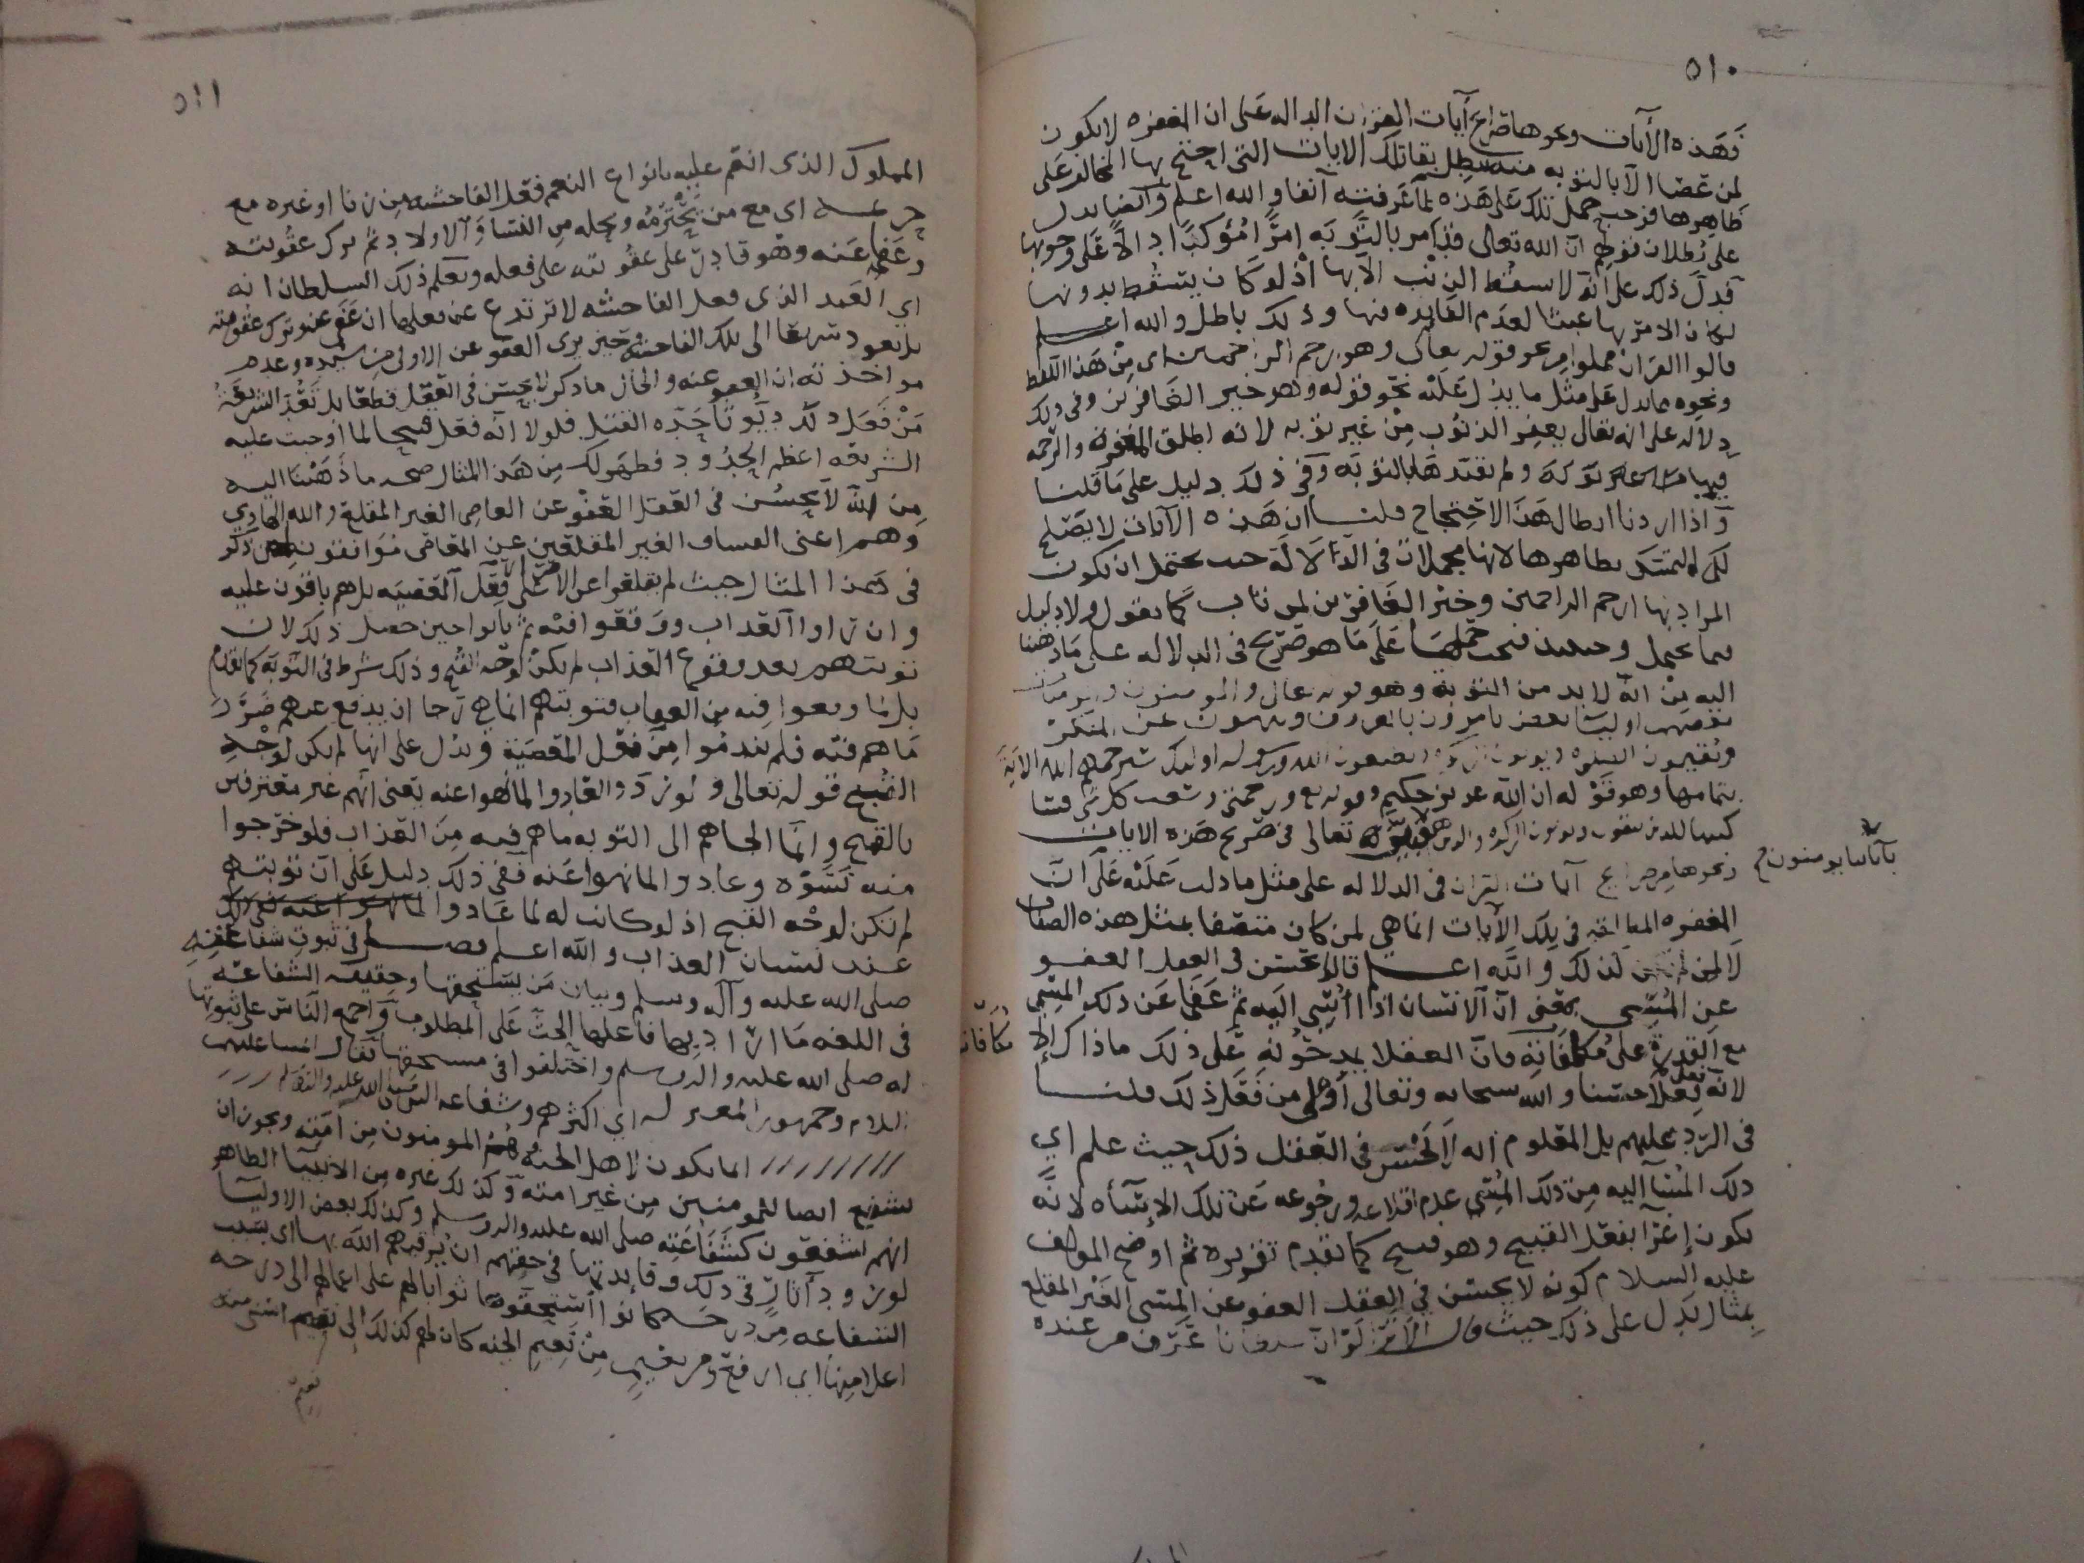 ٥١٠
فهذه الآيات ونحوها صرايح آيات القرآن الداله على ان المغفره لا يكون
لمن عصا الا بالتوبه منه بقا تلك الايات التي احتج بها المخالف على
ظاهرها فوجب حمل تلك على هذه لما عرفته آنفا والله اعلم وايضا يدل
على بطلان قولهم ان الله تعالى قد امر بالتوبه امرًا مؤكدًا دالا على وجوبها
فدل ذلك على انه لا يسقط الذنب الا بها اذ لو كان يسقط بدونها
لكان الامر بها عبثا لعدم الفايده فيها وذلك باطل والله اعلم
قالوا القرآن مملوا من نحو قوله تعالى وهو ارحم الراحمين اي من هذا اللفظ
ونحوه مما دل على مثل ما يدل عليه نحو قوله وهو خير الغافرين وفي ذلك
دلاله على انه تعال يغفر الذنوب من غير توبه لانه اطلق المغفره والرحمه
فيها ولم يقيدها بالتوبه وفي ذلك دليل على ما قلنا
واذا اردنا ابطال هذا الاحتجاج قلنا ان هذه الآيات لا يصلح
لكم التمسك بظاهرها لانها مجملات في الدلالة حيث يحتمل ان يكون
المراد بها ارحم الراحمين وخير الغافرين لمن تاب كما نقول ولا دليل
فيما يحتمل وحينئذ فيجب حملها على ما هو صريح في الدلاله على ما ذهبنا
اليه من انه لا بد من التوبة وهو قوله تعالى والمومنون والمومنات
بعضهم اوليآ بعض يامرون بالمعروف وينهون عن المنكر
ويقيمون الصلوه ويوتون الزكوه ويطيعون الله ورسوله اوليك سيرحمهم الله الآية
بتمامها وهو قوله ان الله عزيز حكيم وقوله تع ورحمتي وسعت كل شي فسا
كتبها للذين يتقون ويوتون الزكوه والذين هم
بآياتنا يومنون
فبين تعالى في صريح هذه الايات
ونحوها من صرايح آيات القرآن في الدلاله على مثل ما دلت عليه على ان
المغفره المطلقه في تلك الآيات انما هي لمن كان متصفا بمثل هذه الصفات
لا لمن لم يكن كذلك والله اعلم قالوا يحسن في العقل العفو
عن المسي بمعنى ان الانسان اذا أُسِي اليه ثم عفا عن ذلك المسي
مع القدرة على مكافاته فان العقلا يمدحونه على ذلك وما ذاك الا
مكافاته
لانه فعل حسنا والله سبحانه وتعالى أولى من فعل ذلك قلنا
في الرد عليهم بل المعلوم انه لا يحسن في العقل ذلك حيث علم اي
ذلك المسآ اليه من ذلك المسي عدم اقلاعه ورجوعه عن تلك الإسآه لانه
يكون إغرآ بفعل القبيح وهو قبيح كما تقدم تقريره ثم اوضح المولف
عليه السلام كونه لا يحسن في العقل العفو عن المسي الغير المقلع
بمثال يدل على ذلك حيث قال لو ان سلطانا عرف من عنده
٥١١
المملوك الذي انعم عليه بانواع النعم فعل الفاحشه من زنا او غيره مع
حرمه اي مع من يحترمه ويجله من النسآ والاولاد ثم ترك عقوبته
وعفا عنه وهو قادر على عقوبته على فعله ويعلم ذلك السلطان انه
اي العبد الذي فعل الفاحشه لا يرتدع عن فعلها ان عفي عنه وترك عقوبته
بل يعود سريعا الى تلك الفاحشه وحين يرى العفو عن الاولى من سيده وعدم
مواخذته ان العفو عنه والحال ما ذكر لا يحسن في العقل قطعا بل تعد الشريعة
من فعل ذلك ديوثا حده القتل فلولا انه فعل قبيحا لما اوجبت عليه
الشريعه اعظم الحدود فظهر لك من هذا المثال صحه ما ذهبنا اليه
من انه لا يحسن في العقل العفو عن العاصي الغير المقلع والله الهادي
وهم اعني الفساق الغير المقلعين عن المعاصي موافقون لمن ذكر
في هذا المثال حيث لم يقلعوا عن الاصرار على فعل المعصيه بل هم باقون عليه
وان راوا العذاب ووقعوا فيه ثم تابوا حين حصل ذلك لان
توبتهم بعد وقوع العذاب لم يكن لوجه القبح وذلك شرط في التوبه كما تقدم
بل لما وقعوا فيه من العذاب فتوبتهم انما هي رجا ان يدفع عنهم ضرر
ما هم فيه فلم يندموا من فعل المعصية ويدل على انها لم يكن لوجه
القبح قوله تعالى ولو ردوا لعادوا لما نهوا عنه يعني انهم غير معترفين
بالقبح وانما الجاهم الى التوبه ما هم فيه من العذاب فلو خرجوا
منه نسوه وعادوا لما نهوا عنه ففي ذلك دليل على ان توبتهم
لم تكن لوجه القبح اذ لو كانت له لما عادوا
عند نسيان العذاب والله اعلم فصل في ثبوت شفاعته
صلى الله عليه وآله وسلم وبيان من يستحقها وحقيقه الشفاعه
في اللغه ما اراد بها فاعلها الحث على المطلوب واجمع الناس على ثبوتها
له صلى الله عليه واله وسلم واختلفوا في مستحقها فقال ايمتنا عليهم
السلام وجمهور المعتزله اي اكثرهم وشفاعه النبي صلى الله عليه واله وسلم
انما يكون لاهل الجنه وهم المومنون من امته ويجوز ان
يشفع ايضا لمومنين من غير امته وكذلك غيره من الانبيآ الظاهر
انهم يشفعون كشفاعته صلى الله عليه واله وسلم وكذلك بعض الاوليآ
لورود آثار في ذلك وفايدتها في حقهم ان يرقيهم الله بها اي بسبب
الشفاعه من درجه كانوا استحقوها ثوابا لهم على اعمالهم الى درجه
اعلا منها اي ارفع ومن نعيم من نعيم الجنه كان لهم كذلك الى نعيم اسنى منه
نعيم